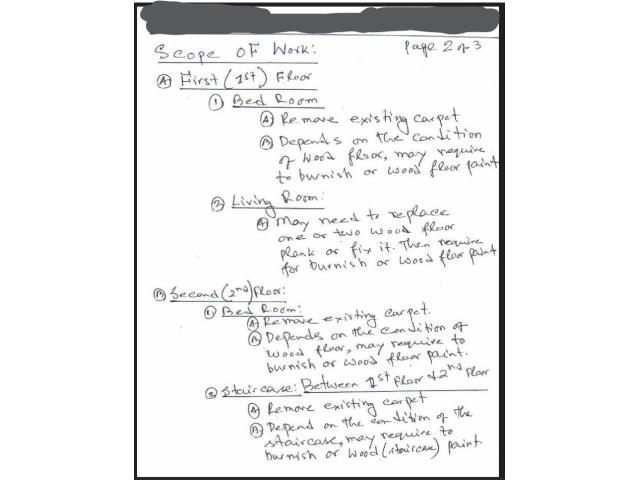 Scope OF Work: Page 2 of 3
(A) First (1st) Floor
(1) Bed Room
(A) Remove existing carpet
(B) Depends on the condition
of wood floor, may require
to burnish or wood floor paint
(2) Living Room:
(A) May need to replace
one or two wood floor
plank or fix it. Then require
for burnish or wood floor paint
(B) Second (2nd) Floor:
(1) Bed Room:
(A) Remove existing carpet.
(B) Depends on the condition of
wood floor, may require to
burnish or wood floor paint.
(2) Staircase: Between 1st Floor & 2nd Floor
(A) Remove existing carpet
(B) Depend on the condition of the
staircase, may require to
burnish or wood (staircase) paint.